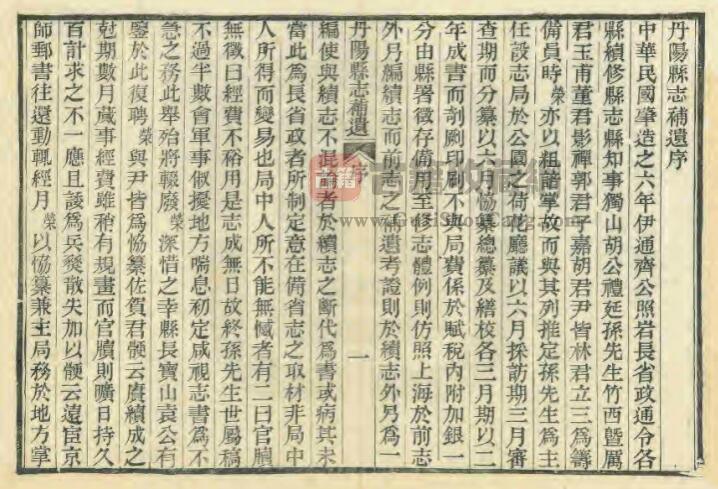 丹陽縣志補遺序
中華民國肇造之六年伊通齊公照岩長省政通令各
縣續修縣志縣知事獨山胡公禮延孫先生竹西曁厲
君玉甫董君影禪郭君子嘉胡君尹皆林君立三爲籌
備員時榮亦以粗諳掌故而與其列推定孫先生爲主
任設志局於公園之荷花廳議以六月採訪期三月審
查期而分纂以六月協纂總纂及繕校各三月期以二
年成書而剞劂印刷不與局費係於賦稅內附加銀一
分由縣署徵存備用至修志體例則仿照上海於前志
外另編續志而前志之補遺考證則於續志外另爲一
丹陽縣志補遺 序 一
編使與續志不混論者於續志之斷代爲書或病其未
當此爲長省政者所制定意在備省志之取材非局中
人所得而變易也局中人所不能無憾者有二曰官牘
無徵曰經費不裕用是志成無日故終孫先生世屬稿
不過半數會軍事俶擾地方喘息初定咸視志書爲不
急之務此舉殆將輟廢榮深惜之幸縣長寶山袁公有
鑒於此復聘榮與尹皆爲協纂佐賀君骾云賡續成之
尅期數月蕆事經費雖稍有規畫而官牘則曠日持久
百計求之不一應且諉爲兵燹散失加以骾云遠宦京
師郵書往還動輒經月榮以協纂兼主局務於地方掌
古籍
www.GuJiShouCang.com